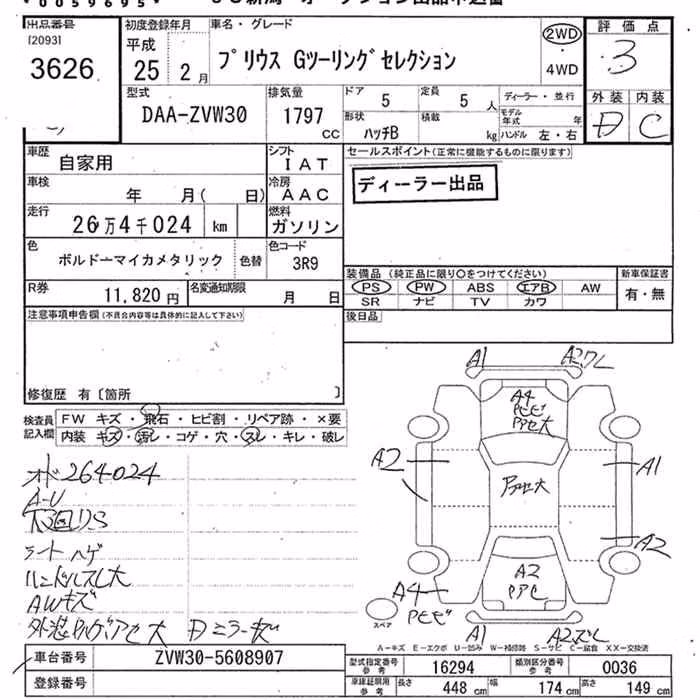 *0059695*
出品番号
[2093]
3626
初度登録年月
平成
25 2月
車名・グレード
プリウス Gツーリングセレクション
2WD
・
4WD
評価点
3
型式
DAA-ZVW30
排気量
1797
cc
ドア
5
定員
5 人
形状
ハッチB
積載
kg
ディーラー・並行
モデル年式 年
ハンドル 左・右
外装 内装
D C
車歴
自家用
シフト
IAT
車検
年 月( 日)
冷房
AAC
走行
26万4千024 km
燃料
ガソリン
色
ボルドーマイカメタリック
色替
色コード
3R9
R券
11,820 円
名変通知期限
月 日
セールスポイント(正常に機能するものに限ります)
ディーラー出品
装備品 (純正品に限り○をつけてください)
PS PW ABS エアB AW
SR ナビ TV カワ
新車保証書
有・無
後日品
注意事項申告欄(不具合内容等は具体的に記入して下さい)
修復歴 有〔箇所 〕
検査員記入欄
FW キズ・飛石・ヒビ割・リペア跡・×要
内装 キズ・汚レ・コゲ・穴・スレ・キレ・破レ
オド264024
A-U
下回りS
ライトハゲ
ハンドルスレ大
AWキズ
A1
A2
A4
A2
A1
A2
A2
A4
スペア
A1
A-キズ E-エクボ U-凹み W-補修跡 S-サビ C-腐食 XX-交換済
車台番号
ZVW30-5608907
登録番号
型式指定番号 参考
16294
類別区分番号 参考
0036
車庫証明用 参考
長さ 448 cm
幅 174 cm
高さ 149 cm